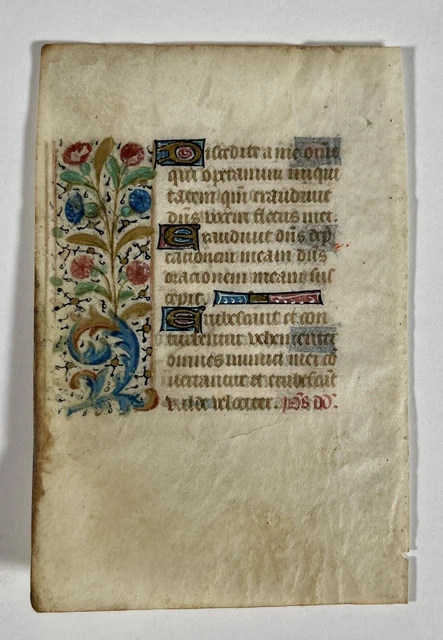 Discedite a me om̄s
qui operamini iniqui
tatem qm̄ exaudivit
dn̄s vocem fletus mei.
Exaudivit dn̄s dep̄
cationem meam dn̄s
orationem meam sus
cepit.
Erubescant et con
turbentur vehementer
omnes inimici mei co
vertantur et erubescāt
valde velociter. ps̄ dd̄.